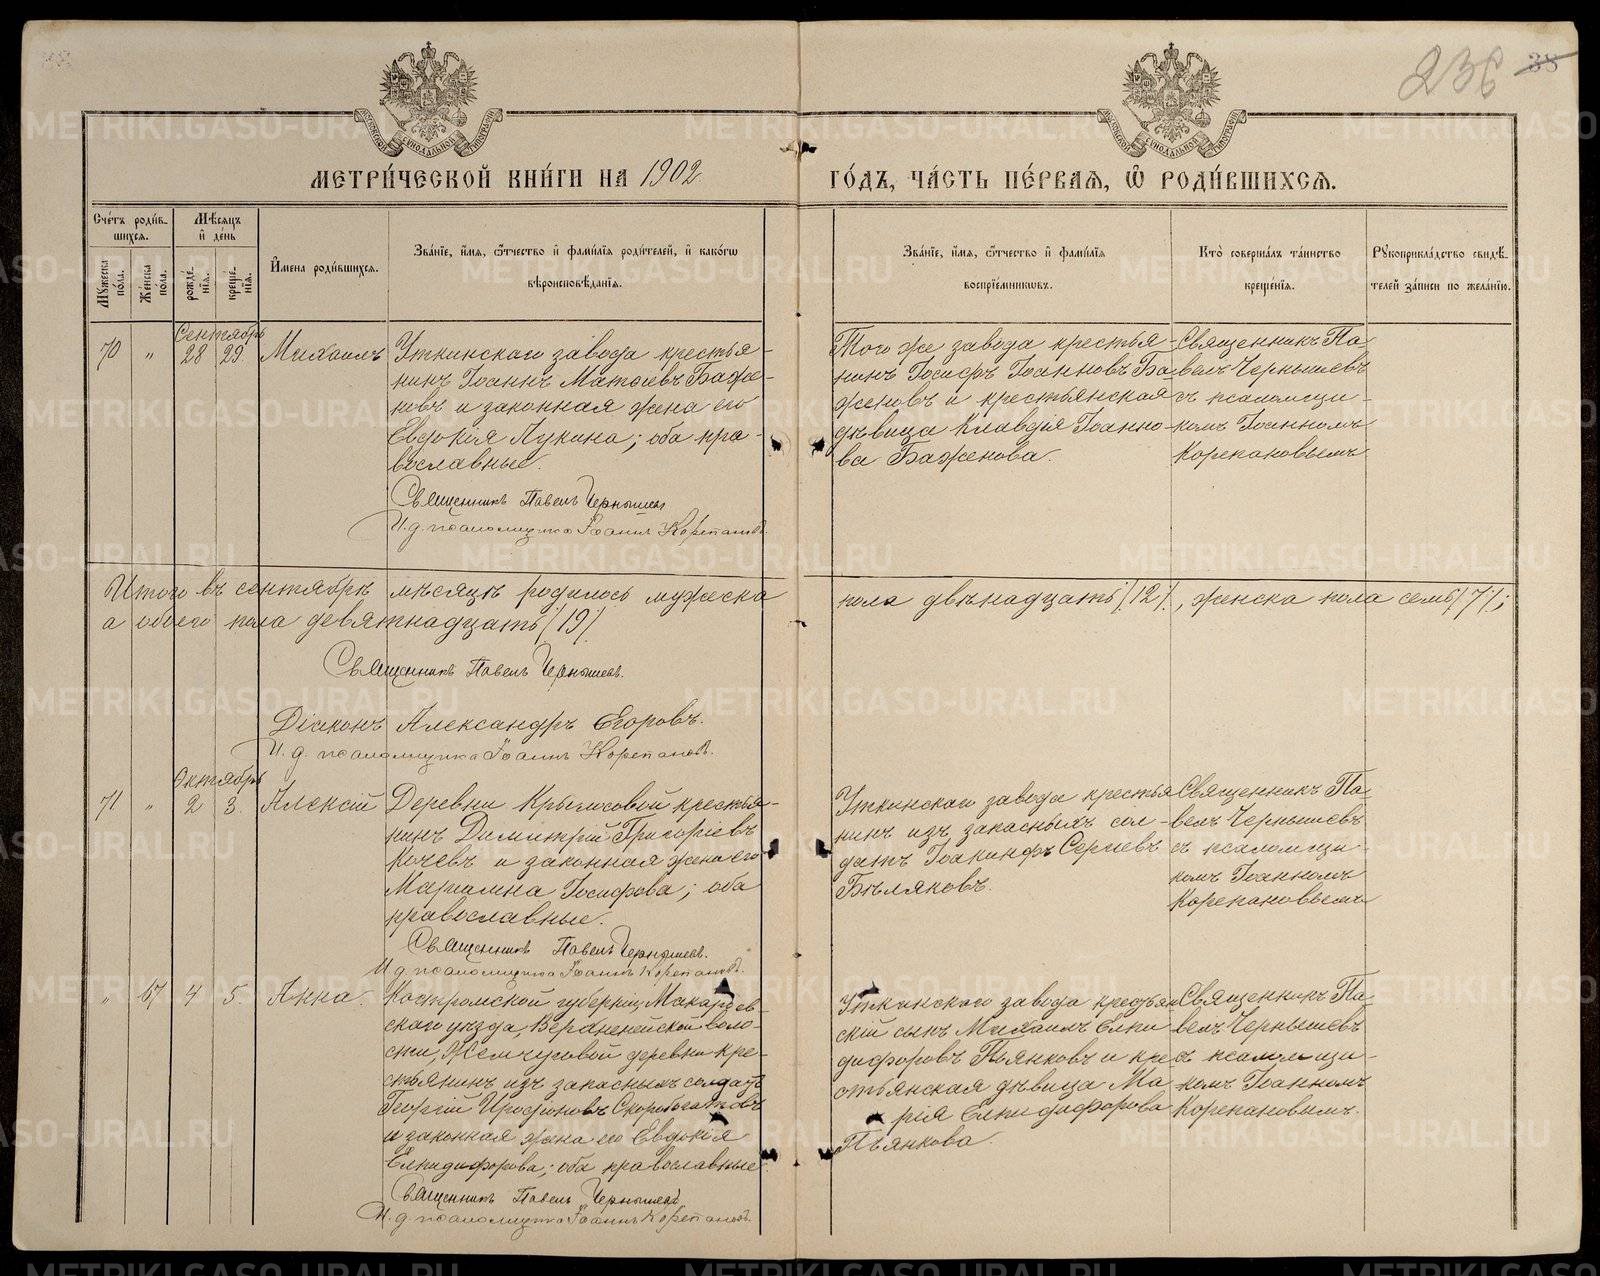 236 38
МЕТРИ́ЧЕСКОЙ КНИ́ГИ НА 1902 ГО́ДЪ, ЧА́СТЬ ПЕ́РВАЯ, Ѡ҆ РОДИ́ВШИХСЯ.
Сче́тъ роди́в-
шихся.
Мꙋ́жеска по́ла.
Же́нска по́ла.
Мѣ́сяцъ
и҆ де́нь
рожде́-
нїя.
креще́-
нїя.
И҆мена роди́вшихся.
Зва́нїе, и҆́мя, ѻ҆́тчество и҆ фами́лїя роди́телей, и҆ како́гѡ
вѣроисповѣ́данїя.
Зва́нїе, и҆́мя, ѻ҆́тчество и҆ фами́лїя
воспрїе́мникѡвъ.
Кто̀ соверша́лъ та́инство
креще́нїя.
Рꙋкоприкла́дство свидѣ́-
телей за́писи по жела́нїю.
Сентябрь
70 " 28 29 Михаилъ
Уткинскаго завода крестья-
нинъ Іоаннъ Матѳіевъ Баже-
новъ и законная жена его
Евдокія Лукина; оба пра-
вославные.
Священникъ Павелъ Чернышевъ
И. д. псаломщика Іоаннъ Корепановъ.
Того же завода крестья-
нинъ Іосифъ Іоанновъ Ба-
женовъ и крестьянская
дѣвица Клавдія Іоанно-
ва Баженова.
Священникъ Па-
велъ Чернышевъ
съ псаломщи-
комъ Іоанномъ
Корепановымъ
Итого въ сентябрѣ мѣсяцѣ родилось мужеска пола двѣнадцать /12/, женска пола семь /7/;
а обоего пола девятнадцать /19/
Священникъ Павелъ Чернышевъ.
Діаконъ Александръ Егоровъ.
И. д. псаломщика Іоаннъ Корепановъ.
Октябрь
71 " 2 3. Алексій
Деревни Крылосовой крестья-
нинъ Димитрій Григоріевъ
Кочевъ и законная жена его
Маріамна Іосифова; оба
православные.
Священникъ Павелъ Чернышевъ.
И. д. псаломщика Іоаннъ Корепановъ.
Уткинскаго завода крестья
нинъ изъ запасныхъ сол-
датъ Іоакинфъ Сергіевъ
Бѣляковъ.
Священникъ Па-
велъ Чернышевъ
съ псаломщи-
комъ Іоанномъ
Корепановымъ
" 67 4 5. Анна.
Костромской губерніи, Макарьев-
скаго уѣзда, волo-
сти, Жемчуговой деревни кре-
стьянинъ изъ запасныхъ солдатъ
Георгій Иродіоновъ Скоробогатовъ
и законная жена его Евдокія
Елпидифорова; оба православные
Священникъ Павелъ Чернышевъ
И. д. псаломщика Іоаннъ Корепановъ.
Уткинскаго завода крестьян
скій сынъ Михаилъ Елпи
дифоровъ Пьянковъ и кре
стьянская дѣвица Ма-
рія Елпидифорова
Пьянкова.
Священникъ Па-
велъ Чернышевъ
съ псаломщи-
комъ Іоанномъ
Корепановымъ.
METRIKI.GASO-URAL.RU